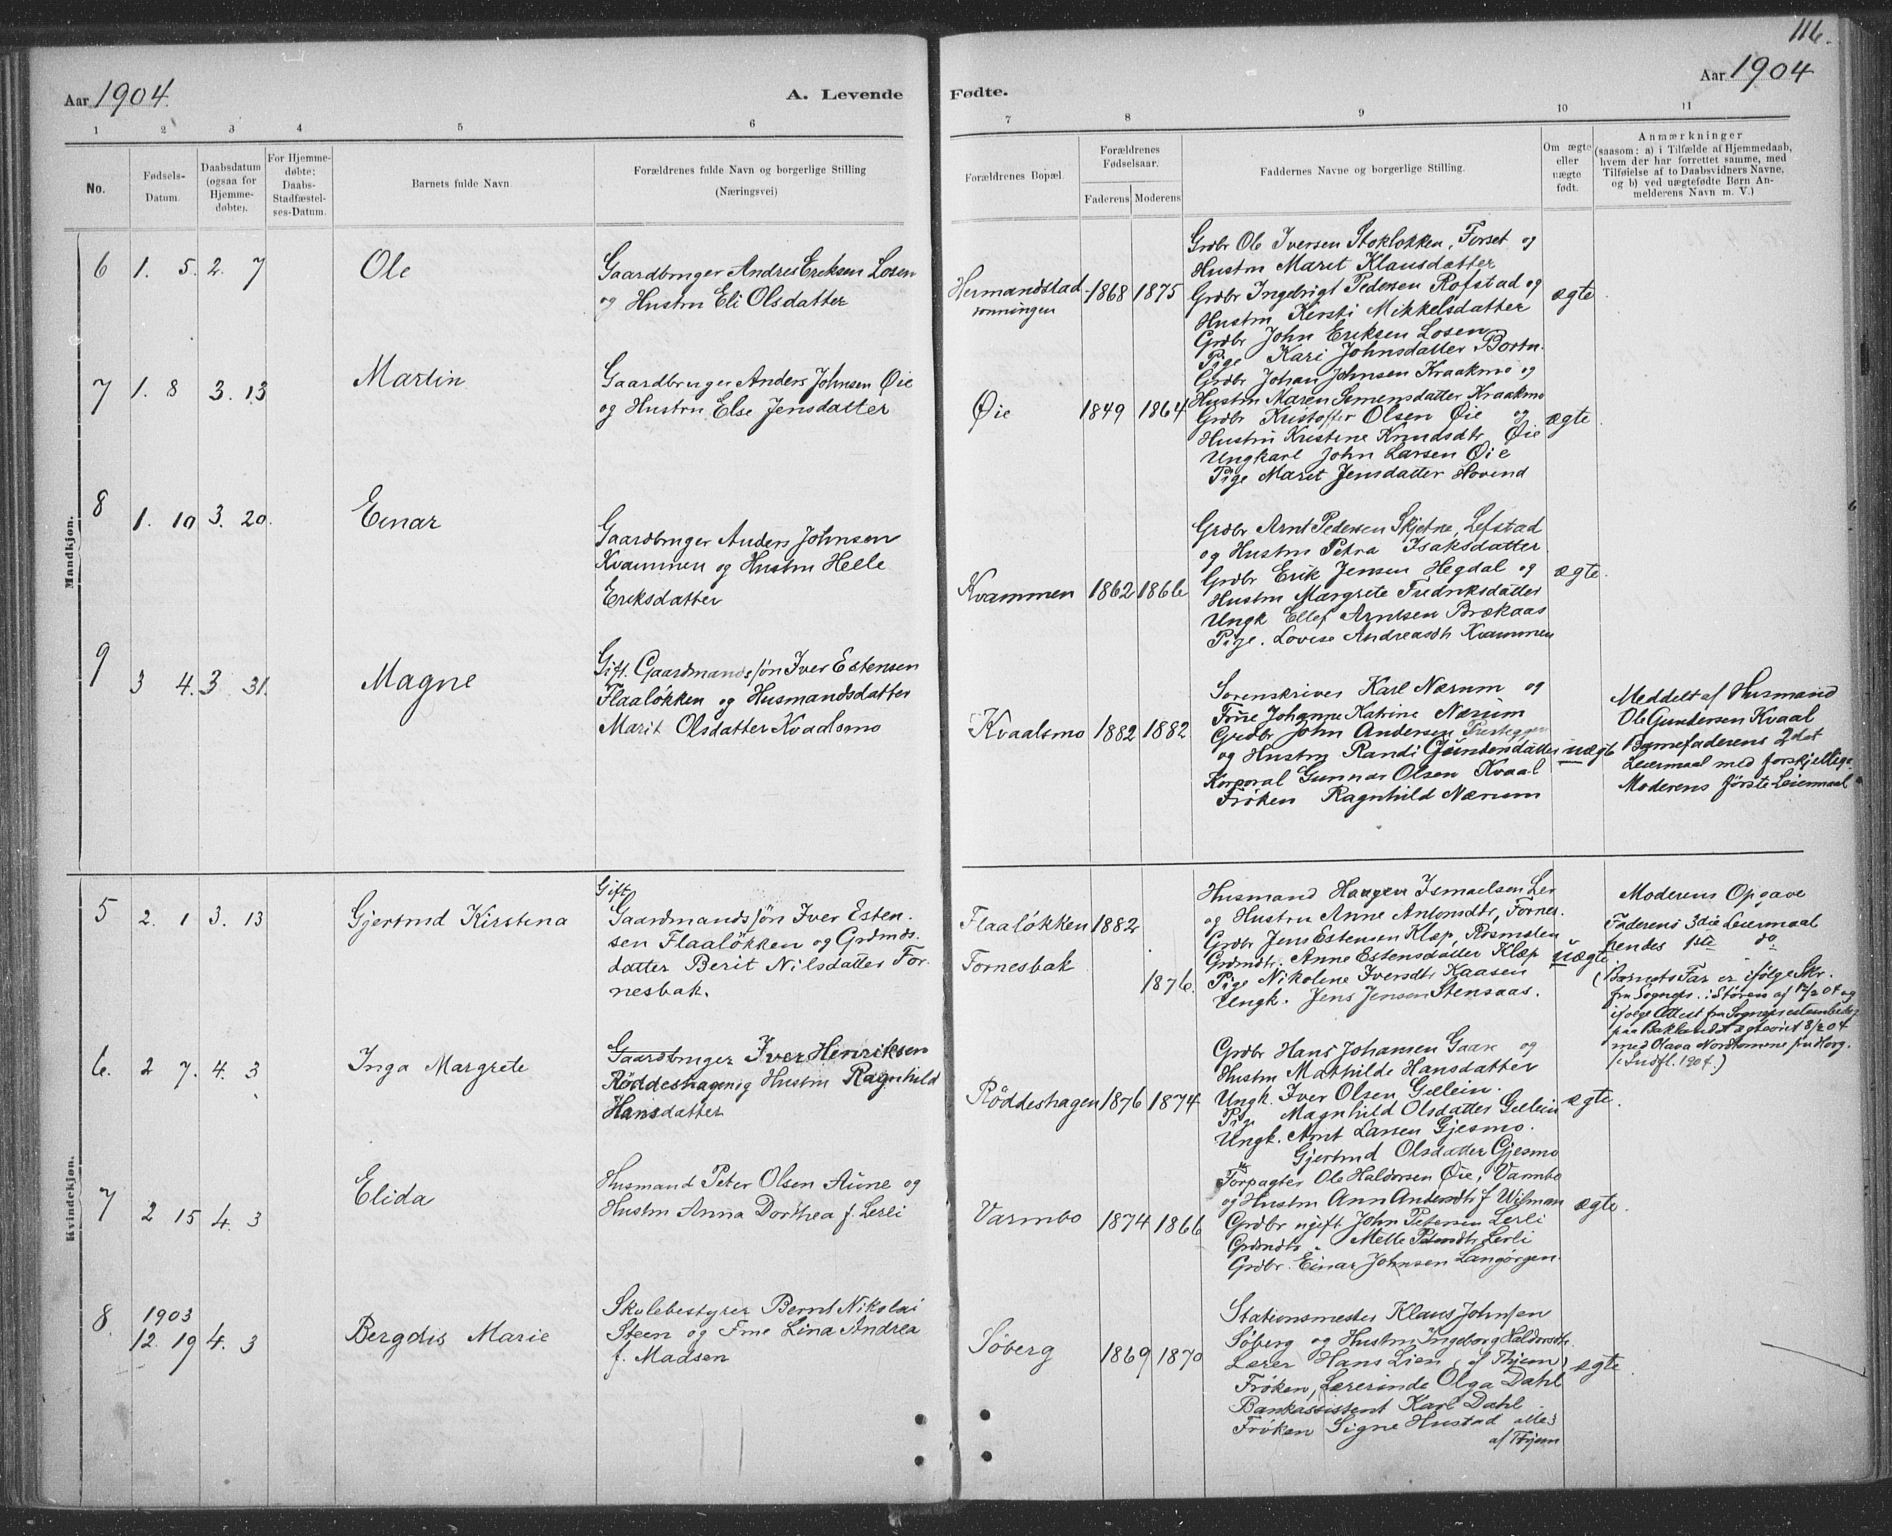 116.
Aar 1904.
A. Levende
Fødte.
Aar 1904
1 2 3 4 5 6
7 8 9 10 11
No.
Fødsels-
Datum.
Daabsdatum
(ogsaa for
Hjemme-
døbte).
For Hjemme-
døbte;
Daabs-
Stadfæstel-
ses-Datum.
Barnets fulde Navn
Forældrenes fulde Navn og borgerlige Stilling
(Næringsvei)
Forældrenes Bopæl.
Forældrenes
Fødselsaar.
Faderens Moderens
Faddernes Navne og borgerlige Stilling.
Om ægte
eller
uægte
født.
Anmærkninger
(saasom: a) i Tilfælde af Hjemmedaab,
hvem der har forrettet samme, med
Tilføielse af to Daabsvidners Navne,
og b) ved uægtefødte Børn An-
melderens Navn m. V.)
Mandkjøn.
6 1. 5. 2. 7 Ole
Gaardbruger Andres Eriksen Losen
og Hustru Eli Olsdatter
Hermandstad
rønningen
1868 1875
Grdbr Ole Iversen Stokløkken, Forset og
Hustru Maret Klausdatter
Grdbr Ingebrigt Pedersen Rofstad og
Hustru Kersti Mikkelsdatter
Grdbr John Eriksen Losen
Pige Kari Johnsdatter Bortn.
ægte
7 1. 8 3. 13 Martin
Gaardbruger Anders Johnsen Øie
og Hustru Else Jensdatter
Øie 1849 1864
Grdbr Johan Johnsen Kraakmo og
Hustru Maren Simensdatter Kraakmo
Grdbr Kristoffer Olsen Øie og
Hustru Kristine Knudsdtr Øie
Ungkarl John Larsen Øie
Pige Maret Jensdatter Hovind
ægte
8 1. 10 3. 20. Einar
Gaardbruger Anders Johnsen
Kvammen og Hustru Helle
Eriksdatter
Kvammen 1862 1866
Grdbr Arnt Pedersen Skjetne, Lefstad
og Hustru Petra Isaksdatter
Grdbr Erik Jensen Hegdal og
Hustru Margrete Fredriksdatter
Ungk Ellef Arntsen Brækaas
Pige. Lovise Andreasdtr Kvammen
ægte.
9 3 4. 3 31. Magne
Gift. Gaardmandssøn Iver Estensen
Flaaløkken og Husmandsdatter
Marit Olsdatter Kvaalsmo
Kvaalsmo 1882 1882
Sorenskriver Karl Nærum og
Frue Johanne Katrine Nærum
Grdbr John Andersen
og Hustru Randi Gundersdatter
Korporal Gunnar Olsen Kvaal
Frøken Ragnhild Nærum
uægte
Meddelt af Husmand
Ole Gundersen Kvaal
Barnefaderens 2det
Leiermaal med forskjellige
Moderens første Leiermaal
Kvindekjøn.
5 2. 1 3. 13 Gjertrud Kirstina
Gift
Gaardmandssøn Iver Esten-
sen Flaaløkken og Grdmds-
datter Berit Nilsdatter For-
nesbak.
Flaaløkken 1882
Fornesbak 1876.
Husmand Haagen Ismaelsen Ler
og Hustru Anne Antonsdtr, Fornes.
Grdbr Jens Estensen Klæp, Rosmælen
Grdmdtr. Anne Estensdatter Klæp
Pige Nikoline Iversdtr Kaasen
Ungk. Jens Jensen Stensaas.
uægte
Moderens Opgave
Faderens 3die Leiermaal
hendes 1ste do
(Barnets Far er ifølge Skr.
fra Sognepr. i Støren af 12/2 04 og
ifølge Attest fra Sogneprestembedet
paa Baklandet ægteviet 8/2 04
med Olava Nordtømme fra Horg.
(. Indfl. 1904.)
6. 2 7. 4. 3 Inga Margrete
Gaardbruger Iver Henriksen
Røddeshagen og Hustru Ragnhild
Hansdatter
Røddeshagen 1876 1874
Grdbr Hans Johansen Gaare og
Hustru Mathilde Hansdatter
Ungk. Iver Olsen Gellein.
Pige Magnhild Olsdatter Gellein
Ungk. Arnt Larsen Gjesmo.
Gjertrud Olsdatter Gjesmo
ægte.
7 2 15 4. 3 Elida
Husmand Peter Olsen Aune og
Hustru Anna Dorthea f. Lerli
Varmbo 1874 1866
Forpagter Ole Haldorsen Øie, Varmbo
og Hustru Ann Andersdtr f Wilman
Grdbr ugift John Petersen Lerli
Grdmdtr Mette Petersdtr Lerli
Grdbr. Einar Johnsen Langørgen.
ægte.
8. 1903
12. 19 4. 3 Bergdis Marie
Skolebestyrer Bernt Nikolai
Steen og Frue Lina Andrea
f. Madsen
Søberg 1869 1870
Stationsmester Klaus Johnsen
Søberg og Hustru Ingeborg Haldorsdtr
Lærer Hans Lien, af Thjem,
Frøken, Lærerinde Olga Dahl
Bankassistent Karl Dahl
Frøken Signe Hustad alle
af Thjem
ægte